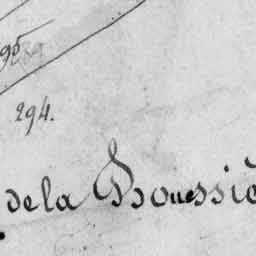 95
294.
de la Boussiè